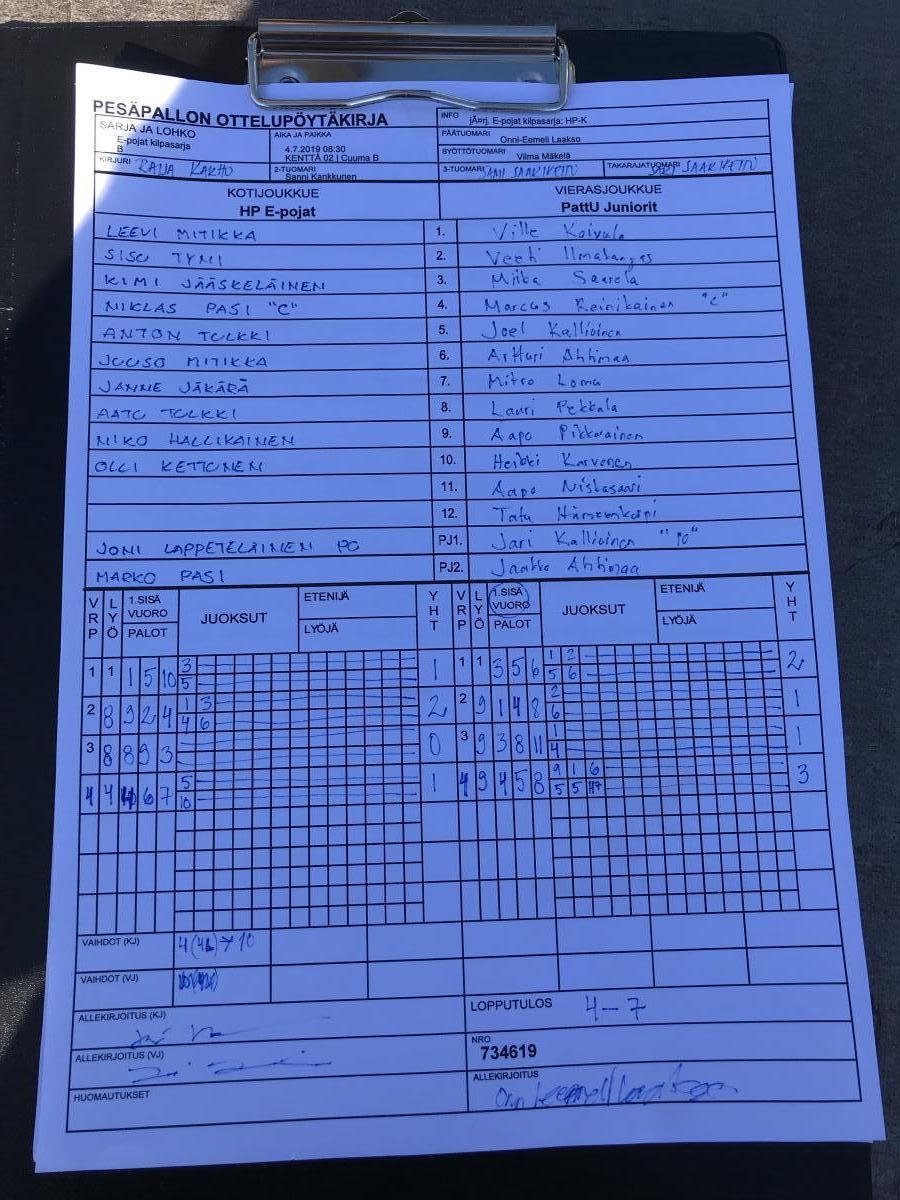 PESÄPALLON OTTELUPÖYTÄKIRJA
INFO jÃ¤rj. E-pojat kilpasarja: HP-K
SARJA JA LOHKO
E-pojat kilpasarja
B
AIKA JA PAIKKA
4.7.2019 08:30
KENTTÄ 02 | Cuuma B
PÄÄTUOMARI
Onni-Eemeli Laakso
SYÖTTÖTUOMARI
Vilma Mäkelä
KIRJURI RAIJA KARHU
2-TUOMARI
Sanni Kankkunen
3-TUOMARI SAMI SAARIKETTU
TAKARAJATUOMARI SAARIKETTU
KOTIJOUKKUE
HP E-pojat
VIERASJOUKKUE
PattU Juniorit
LEEVI MITIKKA 1. Ville Koivula
SISU TYNI 2. Veeti Ilmalangas
KIMI JÄÄSKELÄINEN 3. Miika Saarela
NIKLAS PASI "C" 4. Marcus Reinikainen "C"
ANTON TULKKI 5. Joel Kallioinen
JUUSO MITIKKA 6. Artturi Ahhmaa
JANNE JÄKÄRÄ 7. Mitro Loma
AATU TULKKI 8. Lauri Pekkala
NIKO HALLIKAINEN 9. Aapo Pikkarainen
OLLI KETTUNEN 10. Heikki Karvonen
11. Aapo Niskasaari
12. Tatu
JONI LAPPETELÄINEN PO PJ1. Jari Kallioinen "PJ"
MARKO PASI PJ2. Jarkko Ahhmaa
VRP LYÖ 1.SISÄ VUORO PALOT JUOKSUT ETENIJÄ LYÖJÄ YHT VRP LYÖ 1.SISÄ VUORO PALOT JUOKSUT ETENIJÄ LYÖJÄ YHT
1 1 1 5 10 3 1 1 1 3 5 6 1 2 2
5 5 6
2 8 9 2 4 1 3 2 2 9 1 4 8 2 1
4 6 6
3 8 8 9 3 0 3 9 3 8 11 1 1
4
4 4 6 7 5 1 4 9 4 5 8 9 1 6 3
10 5 5
VAIHDOT (KJ) → 10
VAIHDOT (VJ)
ALLEKIRJOITUS (KJ)
LOPPUTULOS 4-7
ALLEKIRJOITUS (VJ)
NRO
734619
HUOMAUTUKSET
ALLEKIRJOITUS